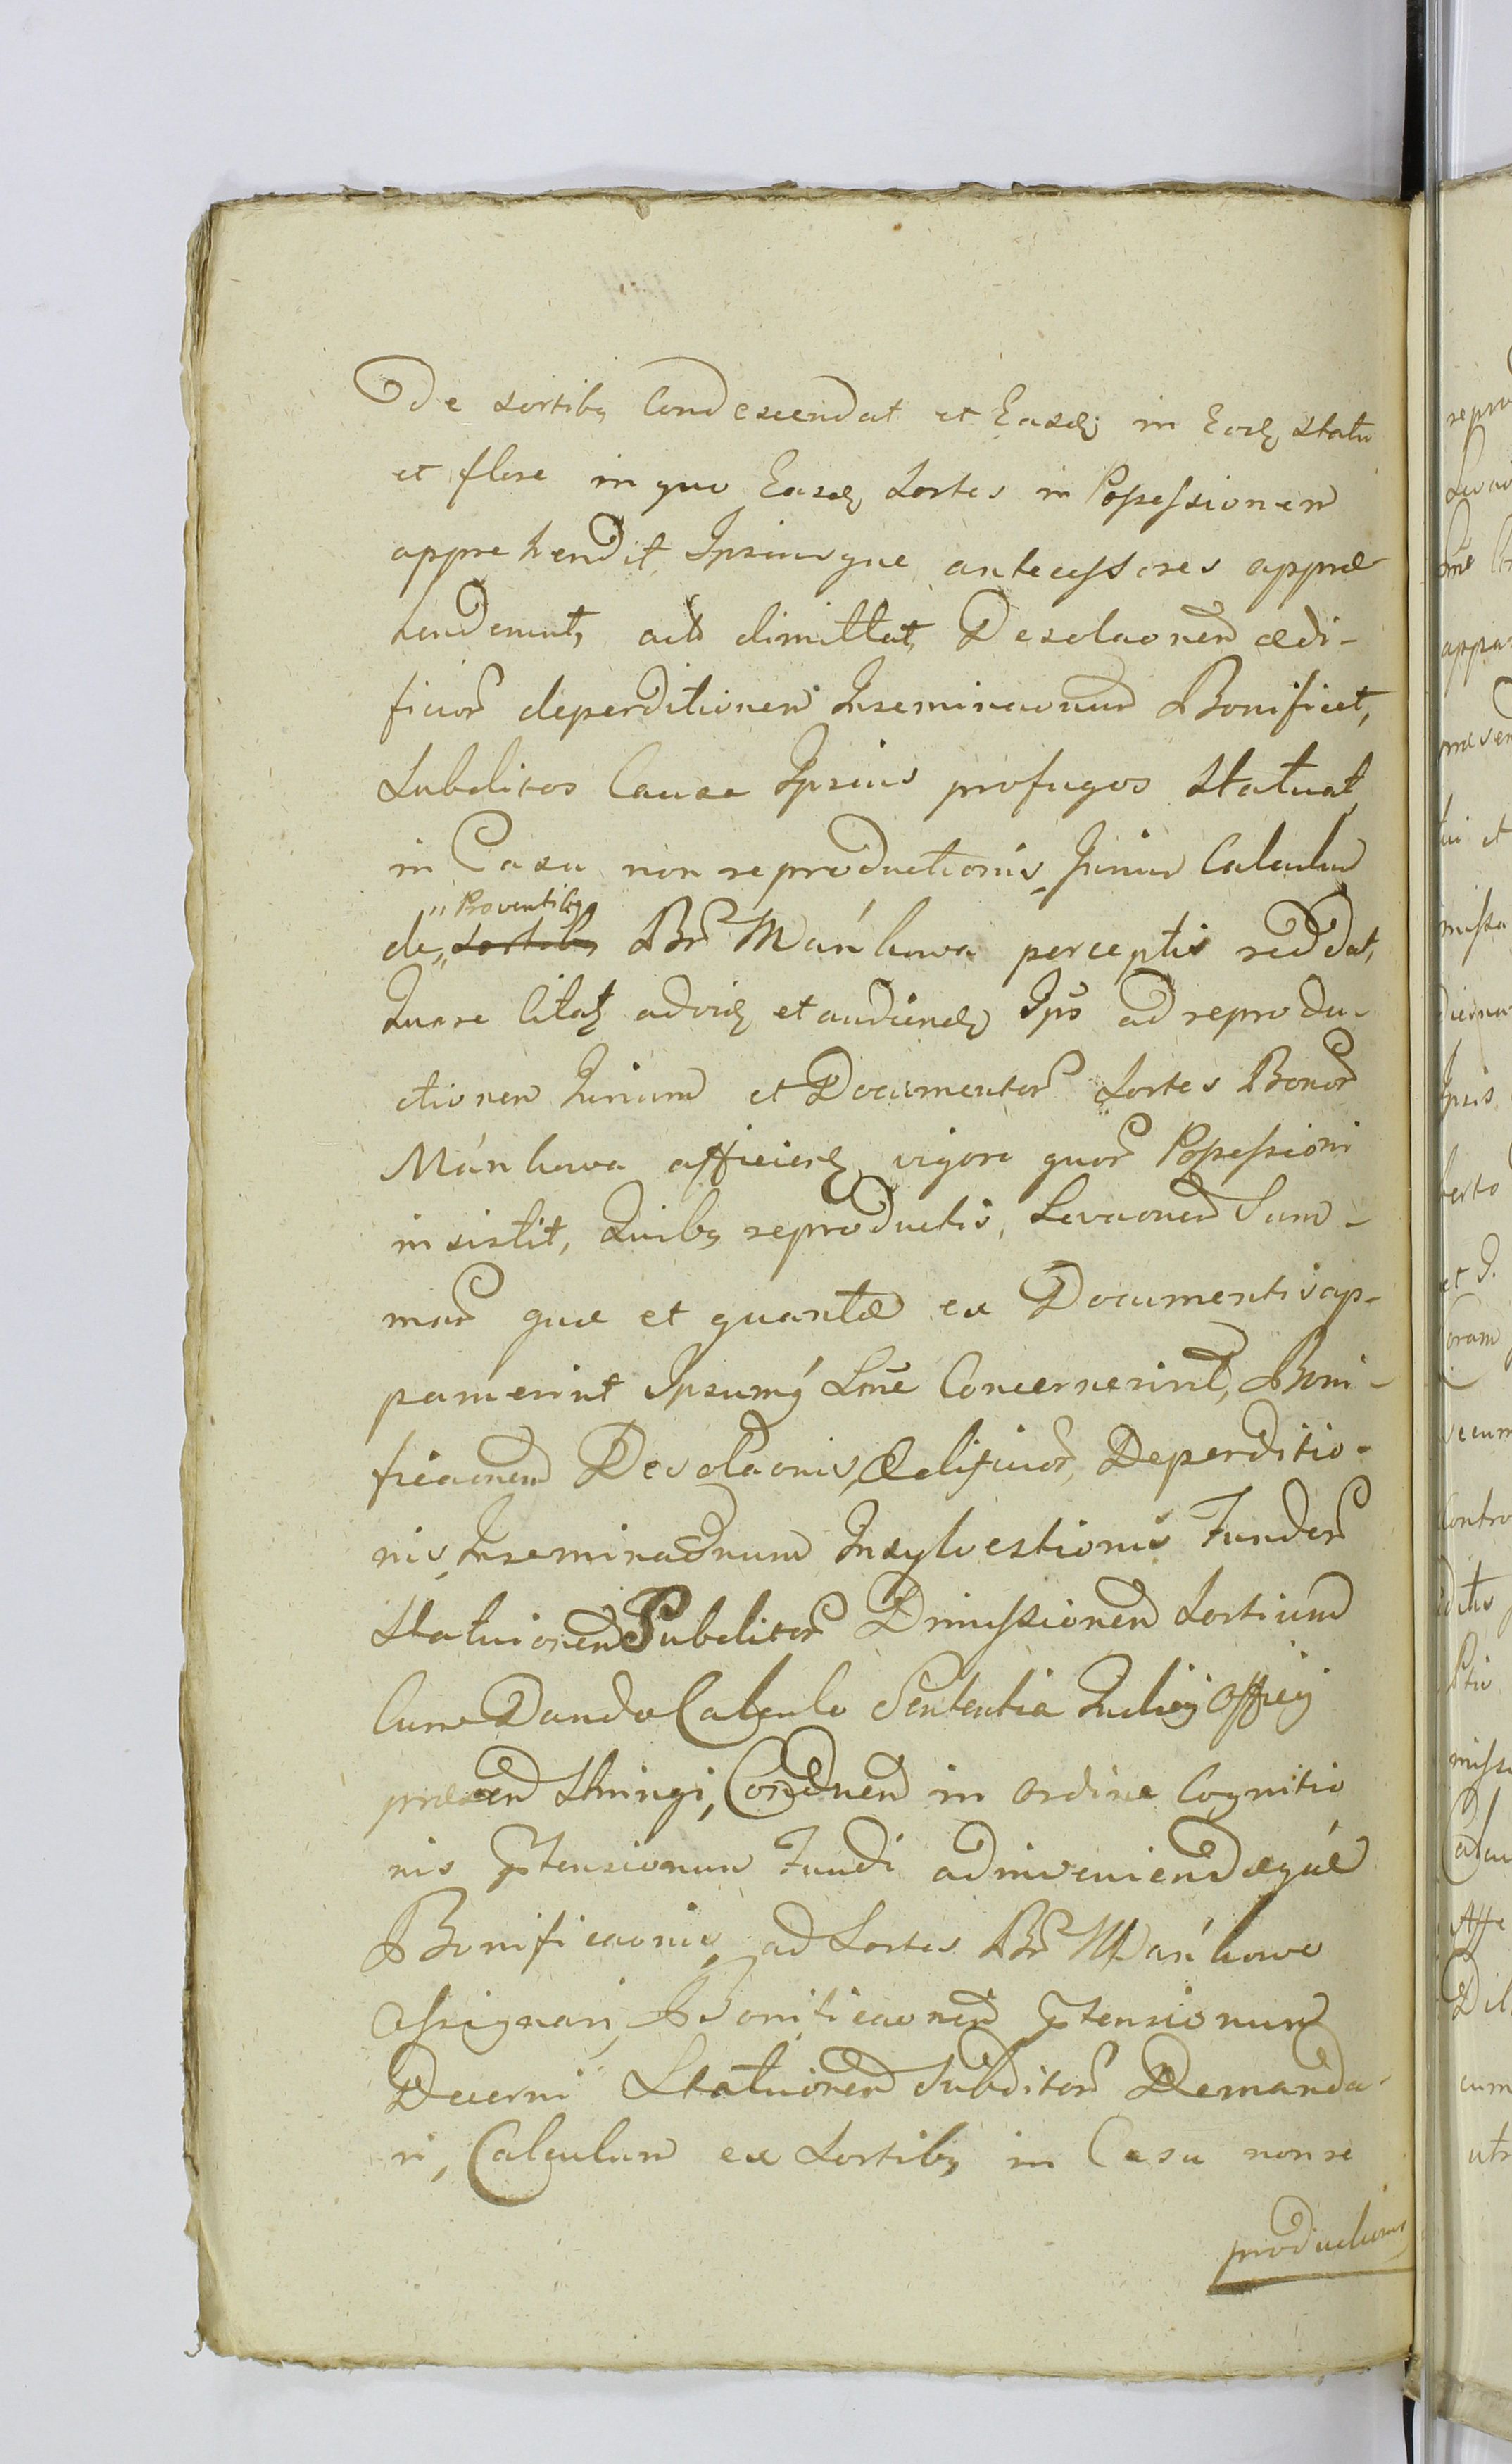 De sortibꝫ Condescendat et Easdꝫ in Eodꝫ statu
et flore in quo Easdꝫ Sortes in Possessionem
apprehendit, Ipsiusque antecessores appræ-
henderunt, dimittat, Desolaonem ædi-
ficior deperditionem Inseminaonum Bonificet,
Subditos Causa Ipsius profugos Statuat,
in Casu non reproductionis Jurium Calculum
de Proventibꝫ sortibꝫ Br Mańkowa perceptis reddat,
Quare Citatꝫ ad vidꝫ et audiendꝫ Ips ad reprodu-
ctionem Jurium et Documentor Sortes Bonor
Mańkowa afficienꝫ vigore quor Possessioni
insistit, Quibꝫ reproductis, Levaonem Sum-
mar quæ et quantæ ex Documentis ap-
paruerint Ipsumq́ Lme Concernerint, Boni-
ficaonem Desolaonis, Ædificior, Deperditio-
nis, Inseminaonum Insylvestionis Fundor
Statuionem Subditor Dimissionem Sortium
Cum Dando Calculo Sententia Judicij Officij
præsen Stringi, Condnem in ordine Cognitio
nis prtensionum Fundi ad inveniendæque
Bonificaonis, ad Sortes Br Mańkowo
Assignari, Bonificaonem prtensionum
Decerni Statuionem Subditor Demanda-
ri, Calculum ex Sortibꝫ in Casu non re
productionis